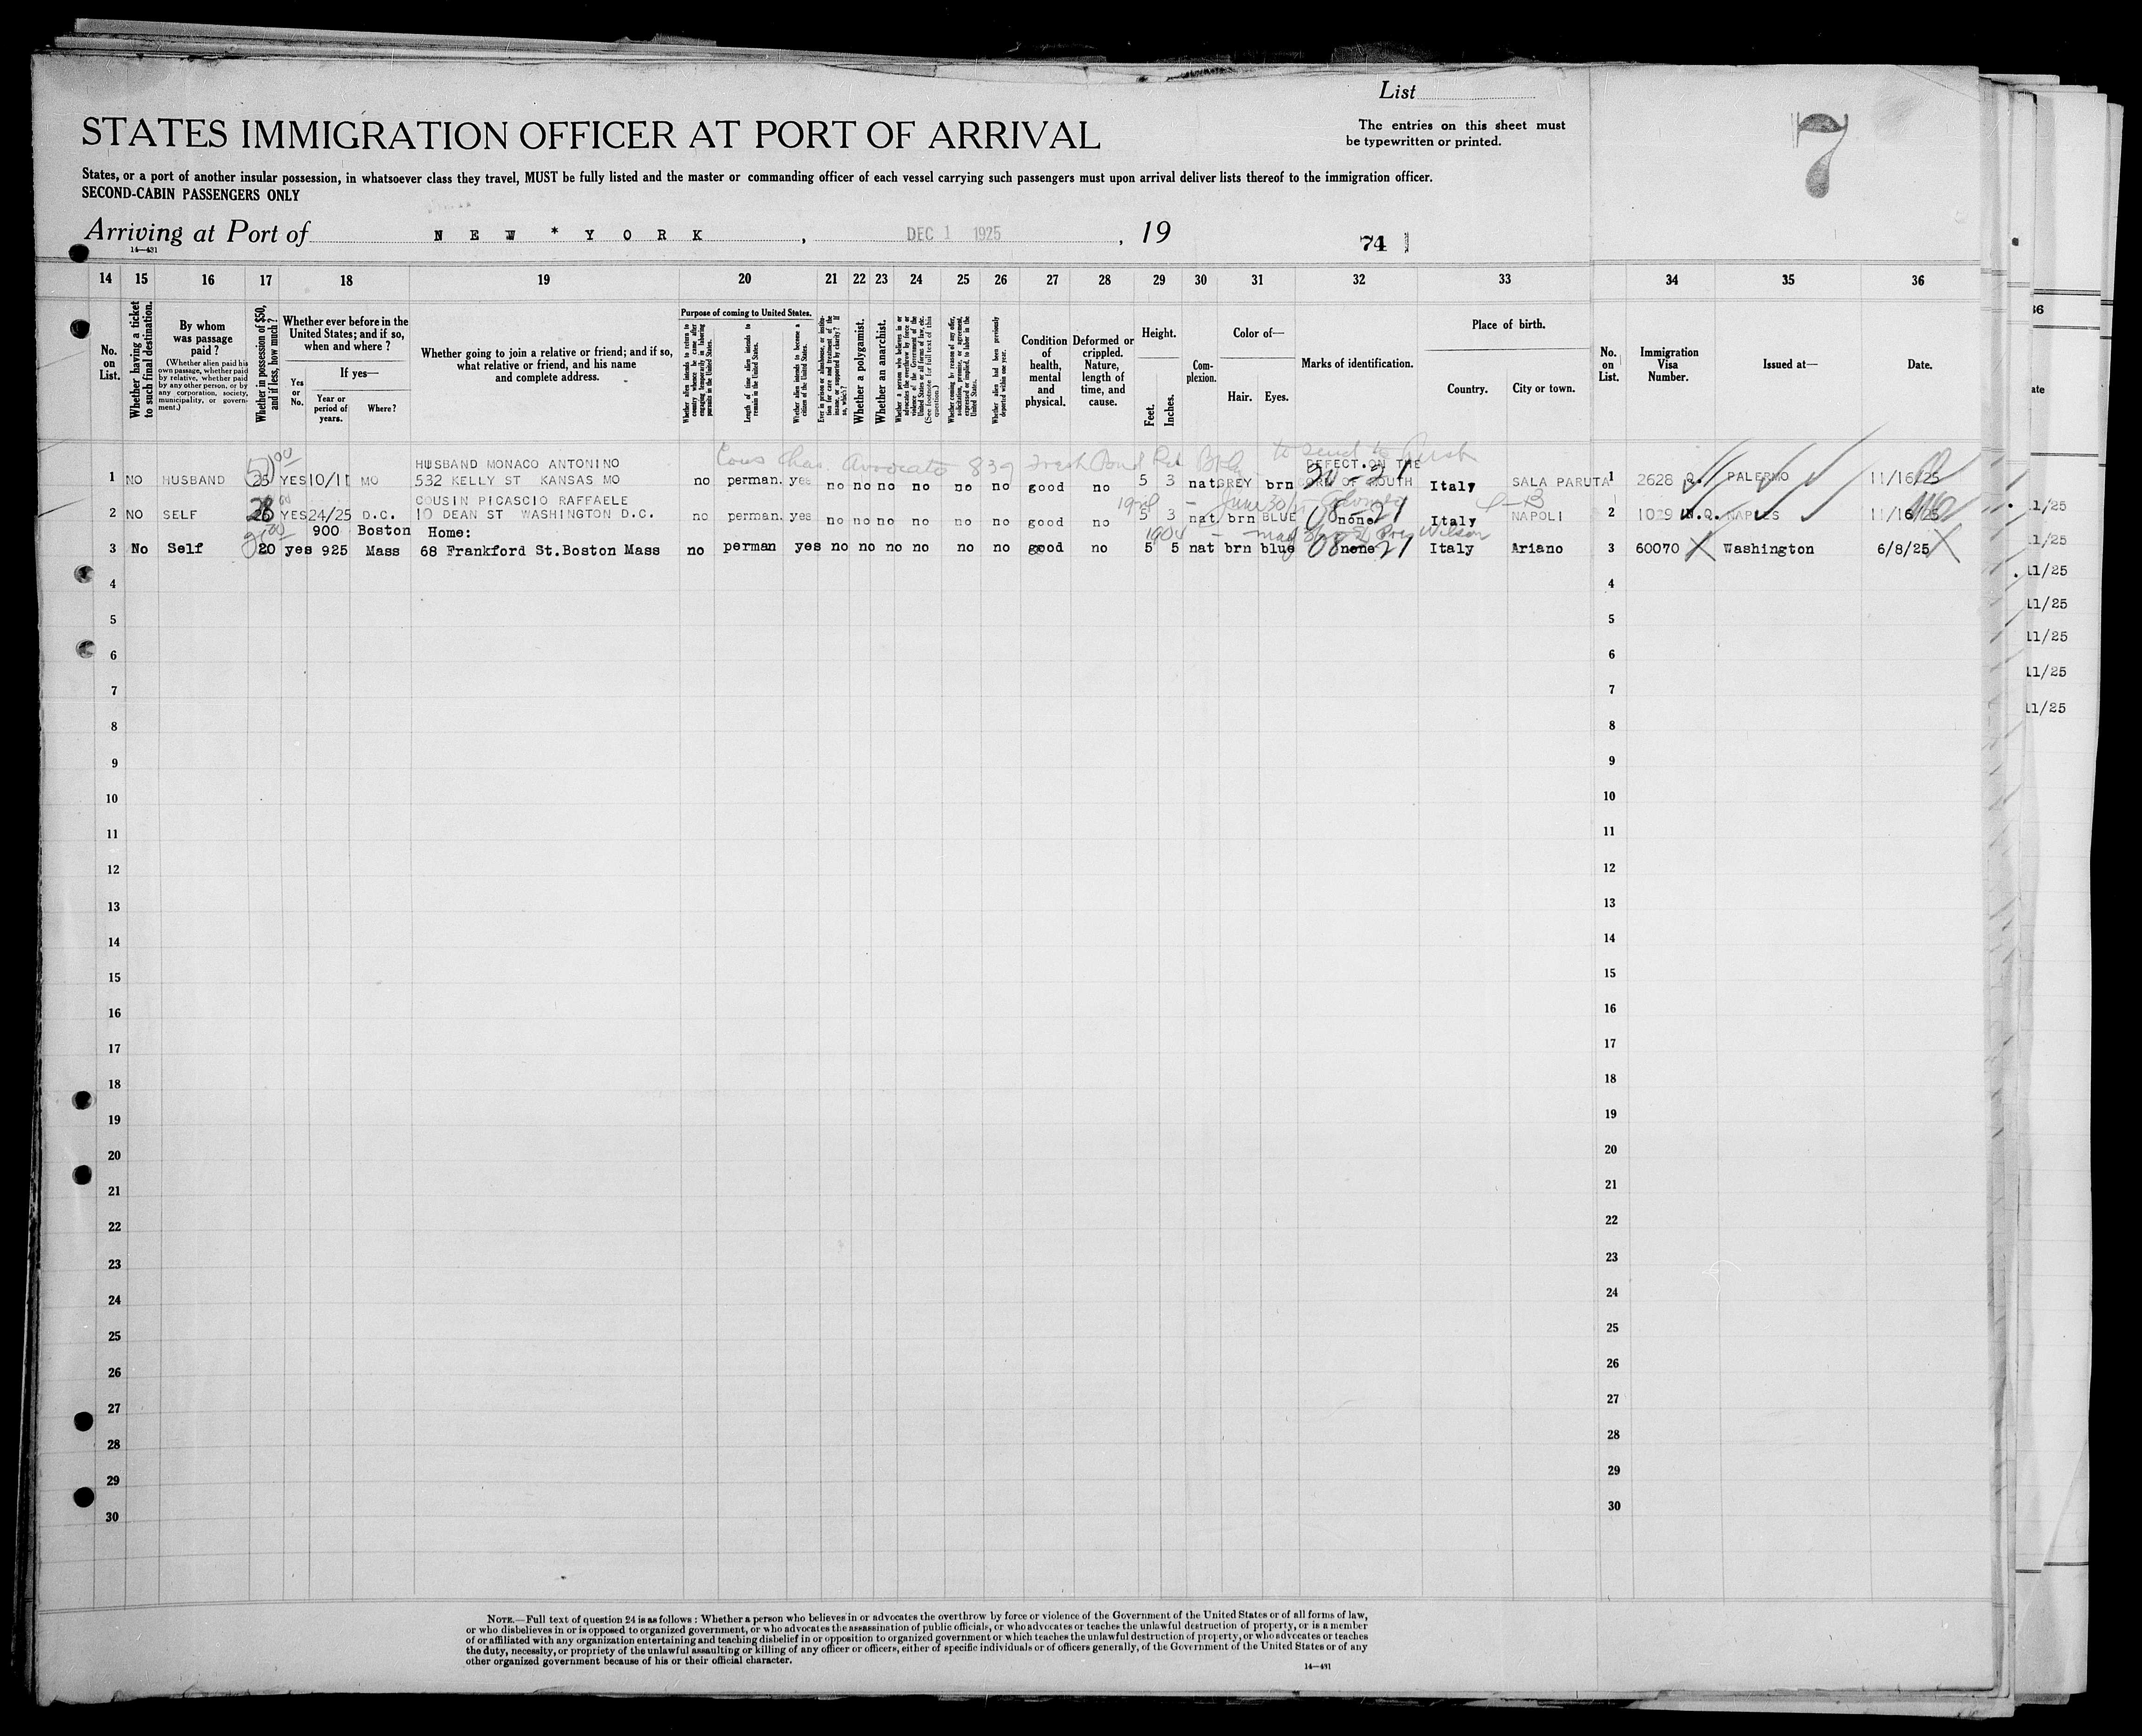 List
STATES IMMIGRATION OFFICER AT PORT OF ARRIVAL
The entries on this sheet must
be typewritten or printed.
7
States, or a port of another insular possession, in whatsoever class they travel, MUST be fully listed and the master or commanding officer of each vessel carrying such passengers must upon arrival deliver lists thereof to the immigration officer.
SECOND-CABIN PASSENGERS ONLY
Arriving at Port of NEW * YORK, DEC 1 1925, 19
14—431
74
14 15 16 17 18 19 20 21 22 23 24 25 26 27 28 29 30 31 32 33 34 35 36
No. on List.
Whether having a ticket to such final destination.
By whom was passage paid?
(Whether alien paid his own passage, whether paid by relative, whether paid by any other person, or by any corporation, society, municipality, or government.)
Whether in possession of $50, and if less, how much?
Whether ever before in the United States; and if so, when and where?
Yes or No.
If yes—
Year or period of years.
Where?
Whether going to join a relative or friend; and if so, what relative or friend, and his name and complete address.
Purpose of coming to United States.
Whether alien intends to return to country whence he came after engaging temporarily in laboring pursuits in the United States.
Length of time alien intends to remain in the United States.
Whether alien intends to become a citizen of the United States.
Ever in prison or almshouse, or institution for care and treatment of the insane, or supported by charity? If so, which?
Whether a polygamist.
Whether an anarchist.
Whether a person who believes in or advocates the overthrow by force or violence of the Government of the United States or all forms of law, etc. (See footnote for full text of this question.)
Whether coming by reason of any offer, solicitation, promise, or agreement, expressed or implied, to labor in the United States.
Whether alien had been previously deported within one year.
Condition of health, mental and physical.
Deformed or crippled. Nature, length of time, and cause.
Height.
Feet. Inches.
Complexion.
Color of—
Hair. Eyes.
Marks of identification.
Place of birth.
Country. City or town.
No. on List.
Immigration Visa Number.
Issued at—
Date.
Cous Chas. Avvocato 839 Fresh Pond Rd Bkly to send to
HUSBAND MONACO ANTONINO DEFECT ON THE
1 NO HUSBAND 25 YES 10/11 MO 532 KELLY ST KANSAS MO no perman. yes no no no no no no good no 5 3 nat GREY brn CORN OF MOUTH Italy SALA PARUTA 1 2628 Q. PALERMO 11/16/25
COUSIN PICASCIO RAFFAELE
2 NO SELF YES 24/25 D.C. 10 DEAN ST WASHINGTON D.C. no perman. yes no no no no no no good no 5 3 nat brn BLUE none 08-21 Italy NAPOLI 2 1029 N.Q. NAPLES 11/16/25
900 Boston Home: 1904 - Pres Wilson
3 No Self 20 yes 925 Mass 68 Frankford St.Boston Mass no perman yes no no no no no no good no 5 5 nat brn blue none 08 21 Italy Ariano 3 60070 Washington 6/8/25
4 4
5 5
6 6
7 7
8 8
9 9
10 10
11 11
12 12
13 13
14 14
15 15
16 16
17 17
18 18
19 19
20 20
21 21
22 22
23 23
24 24
25 25
26 26
27 27
28 28
29 29
30 30
36
ate
11/25
11/25
11/25
11/25
11/25
11/25
11/25
NOTE.—Full text of question 24 is as follows: Whether a person who believes in or advocates the overthrow by force or violence of the Government of the United States or of all forms of law,
or who disbelieves in or is opposed to organized government, or who advocates the assassination of public officials, or who advocates or teaches the unlawful destruction of property, or is a member
of or affiliated with any organization entertaining and teaching disbelief in or opposition to organized government or which teaches the unlawful destruction of property, or who advocates or teaches
the duty, necessity, or propriety of the unlawful assaulting or killing of any officer or officers, either of specific individuals or of officers generally, of the Government of the United States or of any
other organized government because of his or their official character.
14—431